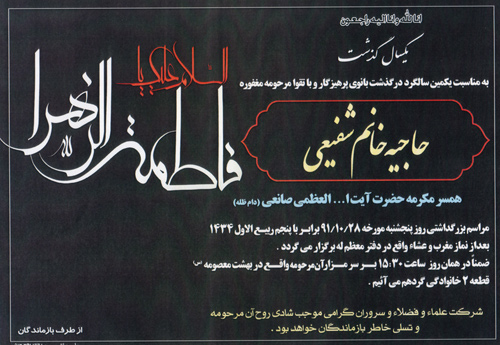 انا لله و انا الیه راجعون
یکسال گذشت
به مناسبت یکمین سالگرد درگذشت بانوی پرهیزگار و با تقوا مرحومه مغفوره
السلام علیک یا
فاطمة الزهرا
حاجیه خانم شفیعی
همسر مکرمه حضرت آیت ا... العظمی صانعی (دام ظله)
مراسم بزرگداشتی روز پنجشنبه مورخه ۹۱/۱۰/۲۸ برابر با پنجم ربیع الاول ۱۴۳۴
بعد از نماز مغرب و عشاء واقع در دفتر معظم له برگزار می گردد .
ضمناً در همان روز ساعت ۱۵:۳۰ بر سر مزار آن مرحومه واقع در بهشت معصومه (س)
قطعه ۲ خانوادگی گردهم می آئیم .
شرکت علماء و فضلاء و سروران گرامی موجب شادی روح آن مرحومه
و تسلی خاطر بازماندگان خواهد بود .
از طرف بازماندگان